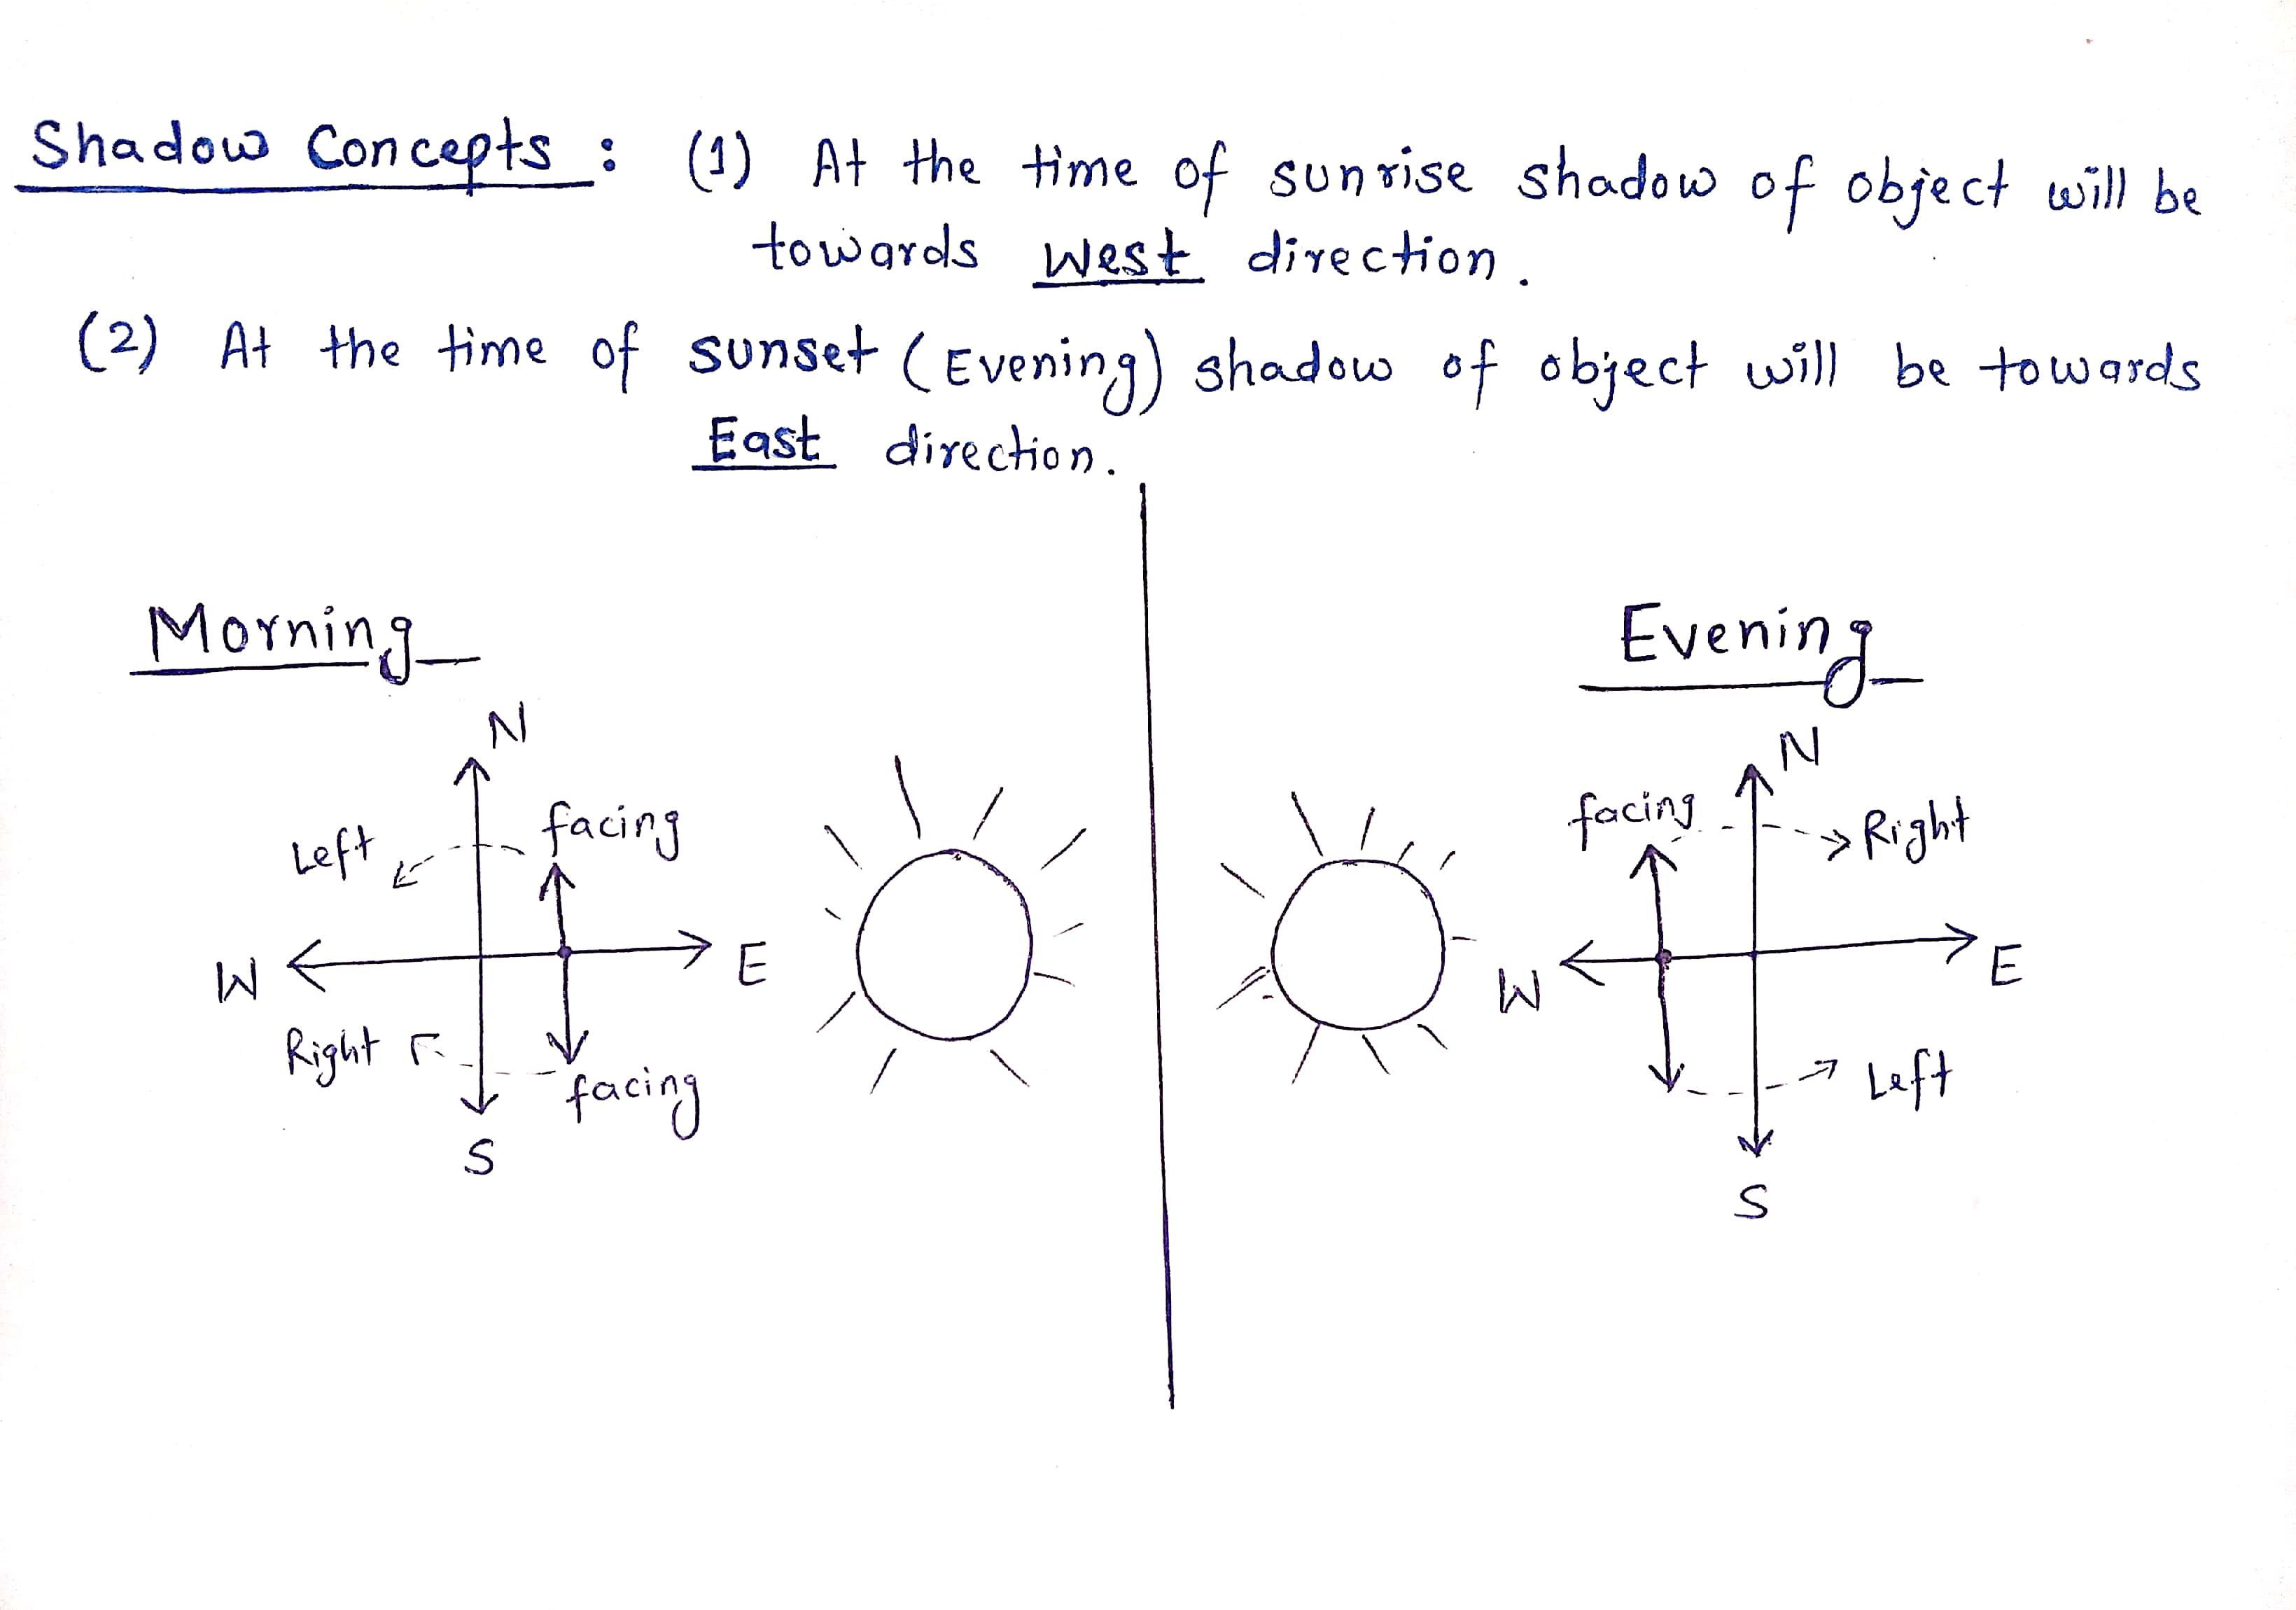 Shadow Concepts : (1) At the time of sunrise shadow of object will be
towards West direction.
(2) At the time of sunset (Evening) shadow of object will be towards
East direction.
Morning
N
Left
facing
W
E
Right
facing
S
Evening
N
facing
Right
W
E
Left
S